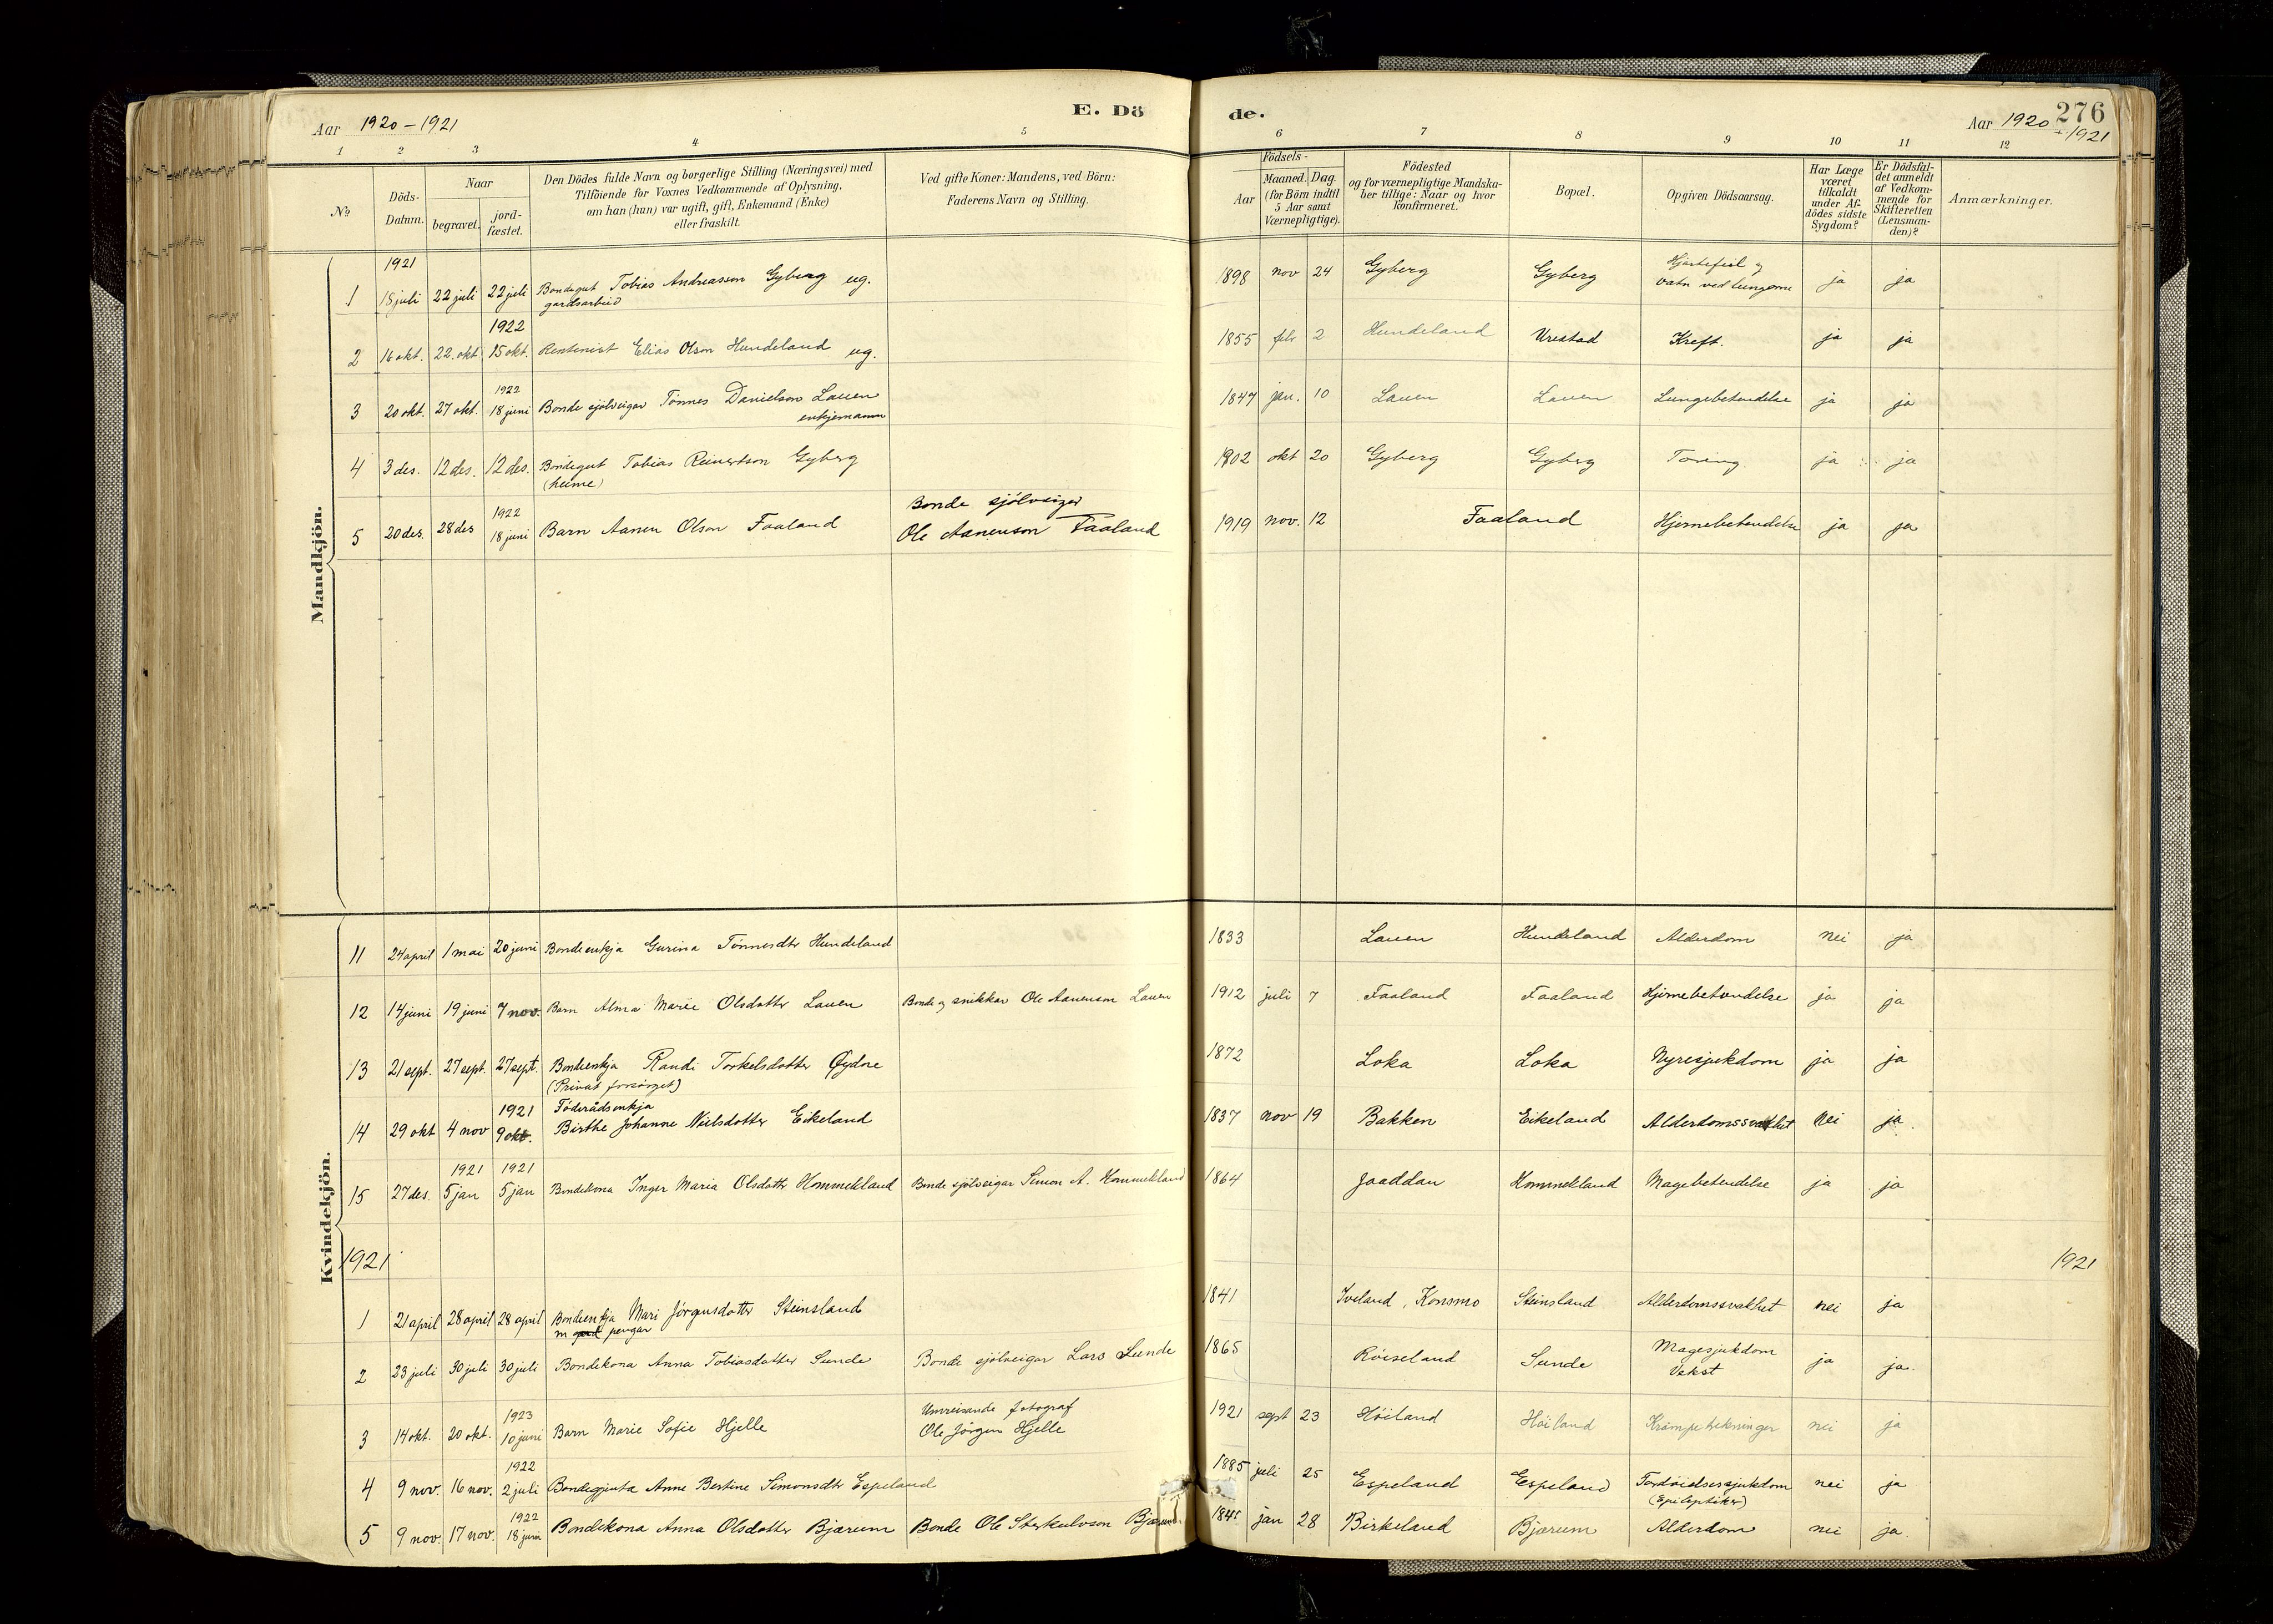 Aar 1920 – 1921
E. Dö
de.
Aar 1920
276
1921
1 2 3 4 5
6 7 8 9 10 11 12
№
Döds-Datum.
Naar
begravet.
jord-fæstet.
Den Dödes fulde Navn og borgerlige Stilling (Næringsvei) med
Tilföiende for Voxnes Vedkommende af Oplysning,
om han (hun) var ugift, gift, Enkemand (Enke)
eller fraskilt.
Ved gifte Koner: Mandens, ved Börn:
Faderens Navn og Stilling.
Födsels-
Aar
Maaned.
Dag.
(for Börn indtil
5 Aar samt
Værnepligtige).
Födested
og for værnepligtige Mandska-
ber tillige: Naar og hvor
konfirmeret.
Bopæl.
Opgiven Dödsaarsag.
Har Læge
været
tilkaldt
under Af-
dödes sidste
Sygdom?
Er Dödsfal-
det anmeldt
af Vedkom-
mende for
Skifteretten
(Lensman-
den)?
Anmærkninger.
Mandkjön.
1921
1 18 juli 22 juli 22 juli Bondegut Tobias Andreasson Gyberg ug. 1898 nov 24 Gyberg Gyberg Hjartefeil og ja ja
gardsarbeid
vatn ved lungome
1922
2 16 okt. 22. okt 15 okt. Rentenist Elias Olson Hundeland ug. 1855 feb 2 Hundeland Vrestad Kreft. ja ja
1922
3 20 okt. 27 okt. 18 juni Bonde sjölveigar Tönnes Danielson Lauen 1847 jan. 10 Lauen Lauen Lungebetendelse ja ja
enkjemann
4 3 des. 12 des. 12 des. Bondegut Tobias Reinertson Gyberg 1902 okt 20 Gyberg Gyberg Tæring ja ja
(heime)
1922
Bonde sjölveigar
5 20 des. 28 des 18 juni Barn Aanen Olson Faaland Ole Aanenson Faaland 1919 nov. 12 Faaland Hjernebetendelse ja ja
Kvindekjön.
11 24 april 1 mai 20 juni Bondeenkja Gurina Tönnesdtr Hundeland 1833 Lauen Hundeland Alderdom nei ja
12 14 juni 19 juni 7 nov. Barn Alma Marie Olsdotter Lauen Bonde og snikkar Ole Aanenson Lauen 1912 juli 7 Faaland Faaland Hjernebetendelse ja ja
13 21 sept. 27 sept. 27 sept. Bondeenkja Randi Torkelsdotter Öydne 1872 Loka Loka Nyresjukdom ja ja
(Privat forsörget)
1921 Föderådsenkja
14 29 okt 4 nov 9 okt. Birthe Johanne Nielsdotter Eikeland 1837 nov 19 Bakken Eikeland Alderdomssvakhet nei ja.
1921 1921
15 27 des. 5 jan 5 jan Bondekona Inger Maria Olsdotter Hommekland Bonde sjölveigar Simon A. Hommekland 1864 Jaaddan Hommekland Magebetendelse ja ja
1921
1921
1 21 april 28 april 28 april Bondeenkja Mari Jörgensdottr Steinsland 1841 Iveland, Konsmo Steinsland Alderdomssvakhet nei ja
m pengar
2 23 juli 30 juli 30 juli Bondekona Anna Tobiasdotter Sunde Bonde sjölveigar Lars Sunde 1865 Röiseland Sunde Magesjukdom ja ja.
Vekst
1923
Umreisande fotograf
3 14 okt. 20 okt. 10 juni Barn Marie Sofie Hjelle Ole Jörgen Hjelle 1921 sept 23 Höiland Höiland nei ja
1922
4 9 nov. 16 nov. 2 juli Bondegjenta Anne Bertine Simonsdtr Espeland 1885 juli 25 Espeland Espeland nei ja
(Epileptiker)
1922
5 9 nov. 17 nov. 18 juni Bondekona Anna Olsdotter Bjærum Bonde Ole Sterkulvson Bjærum. 1845 jan 28 Birkeland Bjærum Alderdom nei ja.